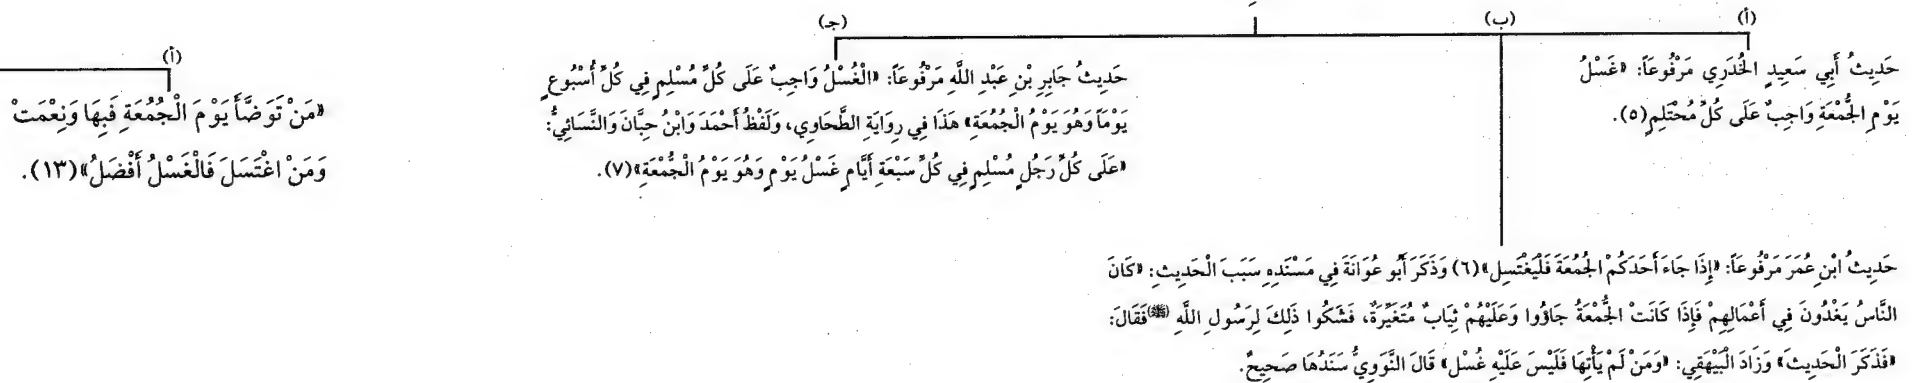 (أ)
حَدِيثُ أَبِي سَعِيدٍ الخُدَرِي مَرْفُوعَاً: «غَسْلُ
يَوْمِ الجُمْعَةِ وَاجِبٌ عَلَى كُلِّ مُحْتَلِمٍ(٥).
(ب)
حَدِيثُ ابْنِ عُمَرَ مَرْفُوعَاً: «إِذَا جَاءَ أَحَدَكُمْ الجُمُعَةَ فَلْيَغْتَسِل»(٦) وَذَكَرَ أَبُو عُوَانَةَ فِي مَسْنَدِهِ سَبَبَ الْحَدِيثِ: «كَانَ
النَّاسُ يَغْدُونَ فِي أَعْمَالِهِمْ فَإِذَا كَانَتْ الجُمْعَةُ جَاؤُوا وَعَلَيْهُمْ ثِيَابٌ مُتَغَيِّرَةٌ، فَشَكُوا ذَلِكَ لِرَسُولِ اللَّهِ (ﷺ)فَقَالَ:
«فَذَكَرَ الْحَدِيثَ» وَزَادَ الْبَيْهَقِي: «وَمَنْ لَمْ يَأْتِهَا فَلَيْسَ عَلَيْهِ غُسْل» قَالَ النَّوَوِيُّ سَنَدُهَا صَحِيحٌ.
(جـ)
حَدِيثُ جَابِرِ بْنِ عَبْدِ اللَّهِ مَرْفُوعَاً: «الْغُسْلُ وَاجِبٌ عَلَى كُلِّ مُسْلِمٍ فِي كُلِّ أُسْبُوعٍ
يَوْمَاً وَهُوَ يَوْمُ الْجُمُعَةِ» هَذَا فِي رِوَايَةِ الطَّحَاوِي، وَلَفْظُ أَحْمَدَ وَابْنُ حِبَّانَ وَالنَّسَائِيُّ:
«عَلَى كُلِّ رَجُلٍ مُسْلِمٍ فِي كُلِّ سَبْعَةِ أَيَّامٍ غَسْلُ يَوْمٍ وَهُوَ يَوْمُ الْجُمْعَةِ»(٧).
(أ)
«مَنْ تَوَضَّأَ يَوْمَ الْجُمُعَةِ فَبِهَا وَنِعْمَتْ
وَمَنْ اغْتَسَلَ فَالْغَسْلُ أَفْضَلُ»(١٣).